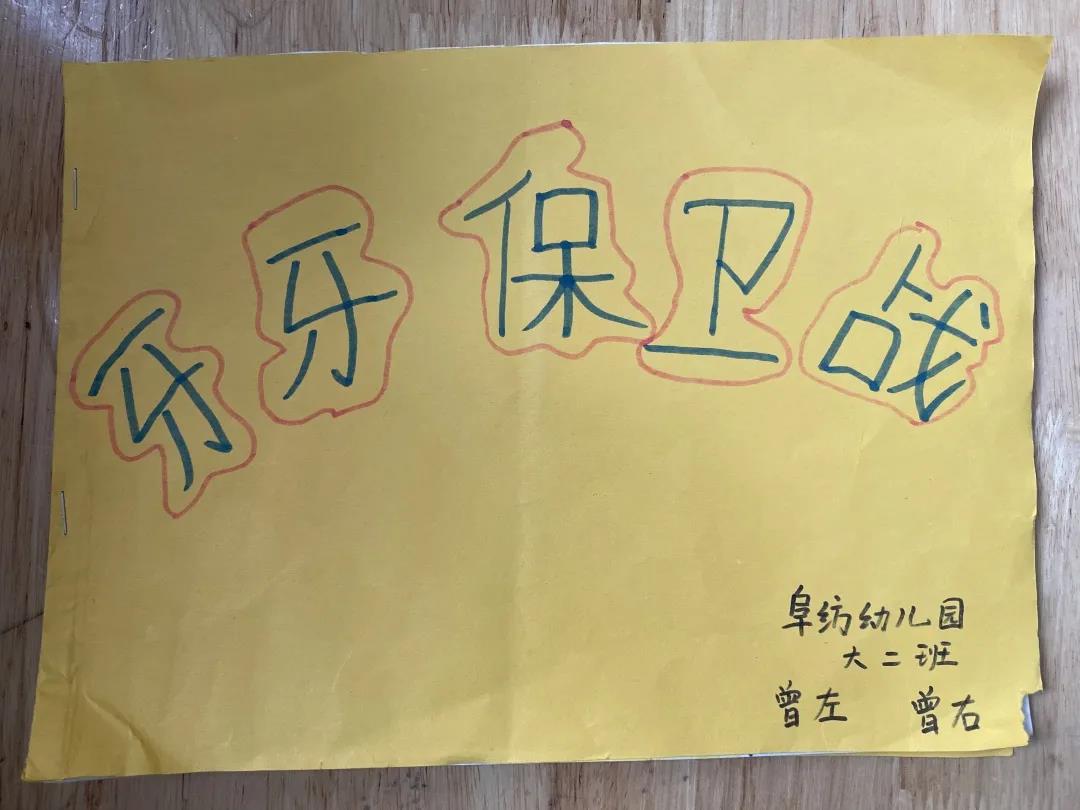 牙牙保卫战
阜纺幼儿园
大二班
曾左 曾右